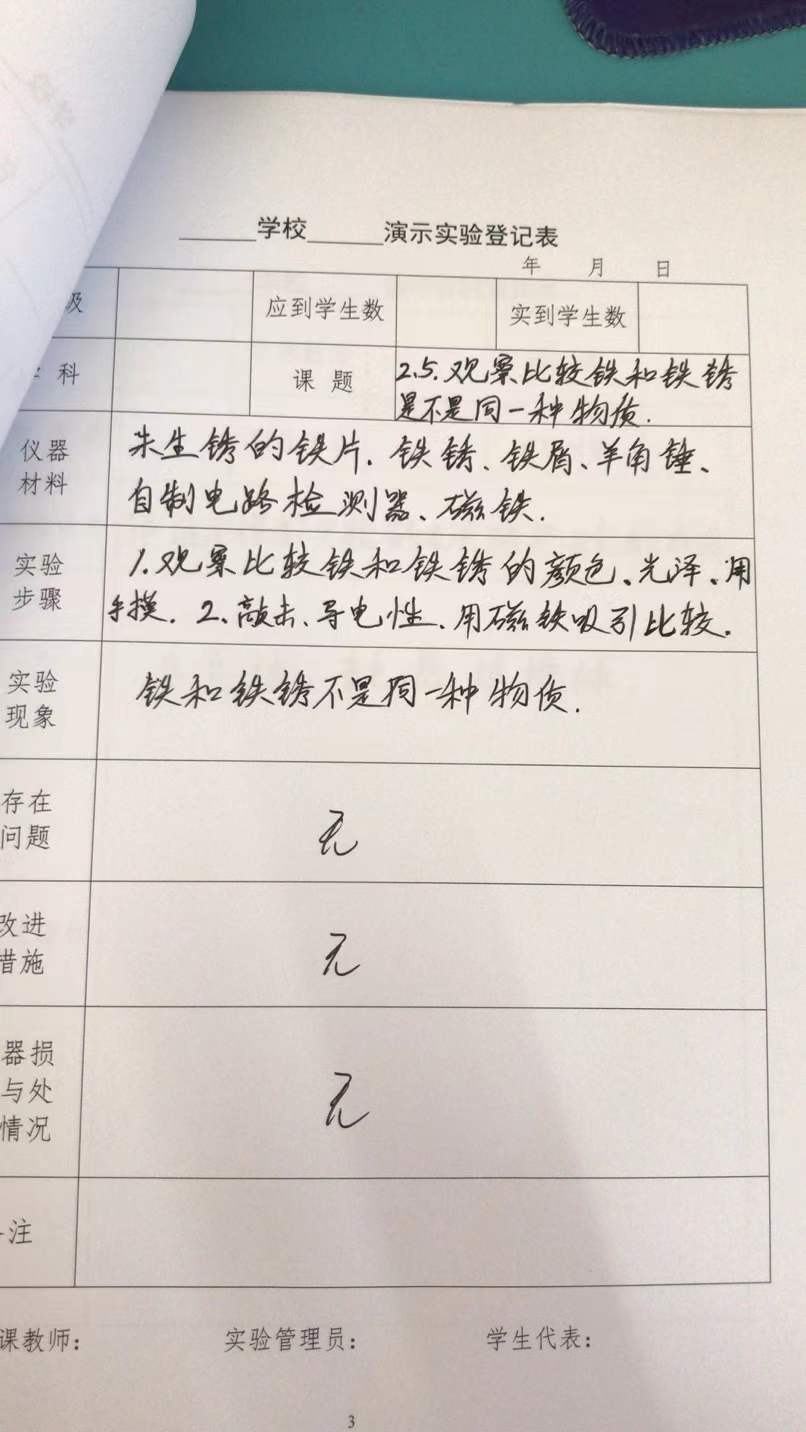 ______学校______演示实验登记表
年 月 日
级 应到学生数 实到学生数
科 课题 2.5.观察比较铁和铁锈
是不是同一种物质.
仪器
材料
未生锈的铁片.铁锈、铁屑、羊角锤、
自制电路检测器、磁铁.
实验
步骤
1.观察比较铁和铁锈的颜色、光泽、用
手摸.2.敲击、导电性.用磁铁吸引比较.
实验
现象
铁和铁锈不是同一种物质.
存在
问题
无
改进
措施
无
器损
与处
情况
无
注
课教师: 实验管理员: 学生代表:
3